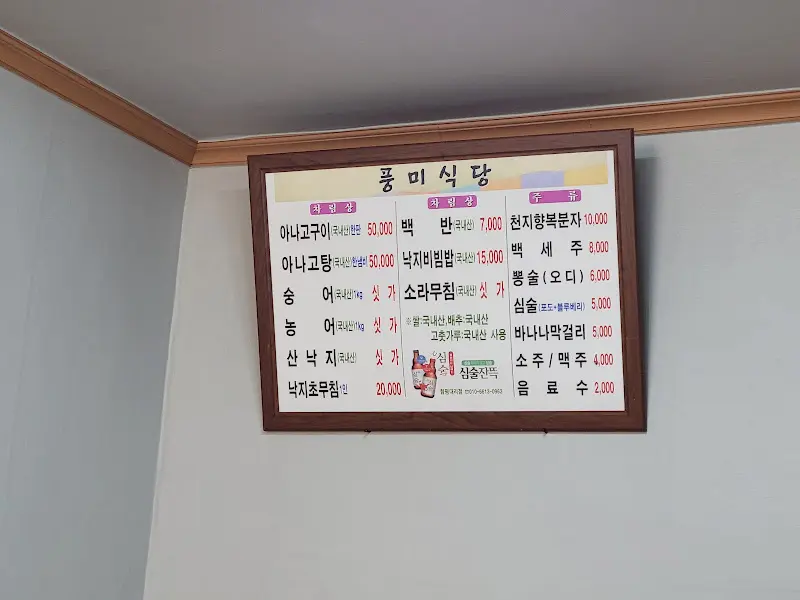 풍미식당
차림상
아나고구이(국내산)한판 50,000
아나고탕(국내산)한냄비 50,000
숭어(국내산)1kg 싯가
농어(국내산)1kg 싯가
산낙지(국내산) 싯가
낙지초무침1인 20,000
차림상
백반(국내산) 7,000
낙지비빔밥(국내산) 15,000
소라무침(국내산) 싯가
※쌀:국내산,배추:국내산
고춧가루:국내산 사용
심술
심술잔뜩
주류
천지향복분자 10,000
백세주 8,000
뽕술(오디) 6,000
심술(포도+블루베리) 5,000
바나나막걸리 5,000
소주/맥주 4,000
음료수 2,000